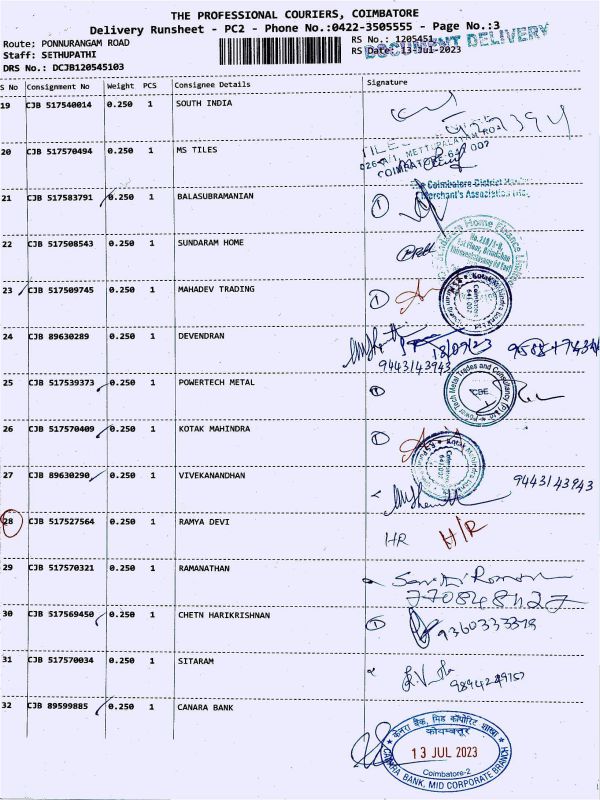 THE PROFESSIONAL COURIERS, COIMBATORE
Delivery Runsheet - PC2 - Phone No.:0422-3505555 - Page No.:3
Route: PONNURANGAM ROAD
RS No.: 1205451
Staff: SETHUPATHI
RS Date: 13-Jul-2023
DOCUMENT DELIVERY
DRS No.: DCJB120545103
S No Consignment No Weight PCS Consignee Details Signature
19 CJB 517540014 0.250 1 SOUTH INDIA
20 CJB 517570494 0.250 1 MS TILES
METTUPALAYAM ROAD
COIMBATORE-641 002
21 CJB 517583791 0.250 1 BALASUBRAMANIAN 1
The Coimbatore District
Merchant's Association
22 CJB 517508543 0.250 1 SUNDARAM HOME
Home Finance
23 CJB 517509745 0.250 1 MAHADEV TRADING 1
Kotak Mahindra
24 CJB 89630289 0.250 1 DEVENDRAN
9443143943
25 CJB 517539373 0.250 1 POWERTECH METAL 1
Power Tech Metal Trades and Consultancy (P) Ltd
CBE
26 CJB 517570409 0.250 1 KOTAK MAHINDRA 1
Kotak Mahindra
27 CJB 89630290 0.250 1 VIVEKANANDHAN
9443143943
28 CJB 517527564 0.250 1 RAMYA DEVI
HR H/R
29 CJB 517570321 0.250 1 RAMANATHAN
30 CJB 517569450 0.250 1 CHETN HARIKRISHNAN 1
31 CJB 517570034 0.250 1 SITARAM
32 CJB 89599885 0.250 1 CANARA BANK
केनरा बैंक, मिड कॉर्पोरेट शाखा
कोयम्बत्तूर
13 JUL 2023
Coimbatore-2
CANARA BANK, MID CORPORATE BRANCH